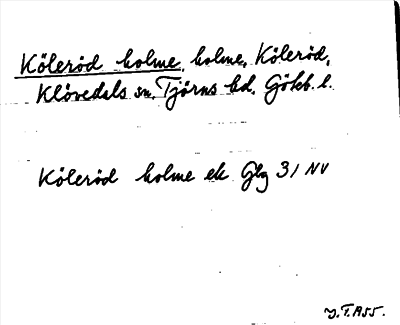 Kölerød holme, holme, Kölerød,
Klövedals sn. Tjörns hd. Götb. l.
Kölerød holme ek Glg 31 NV